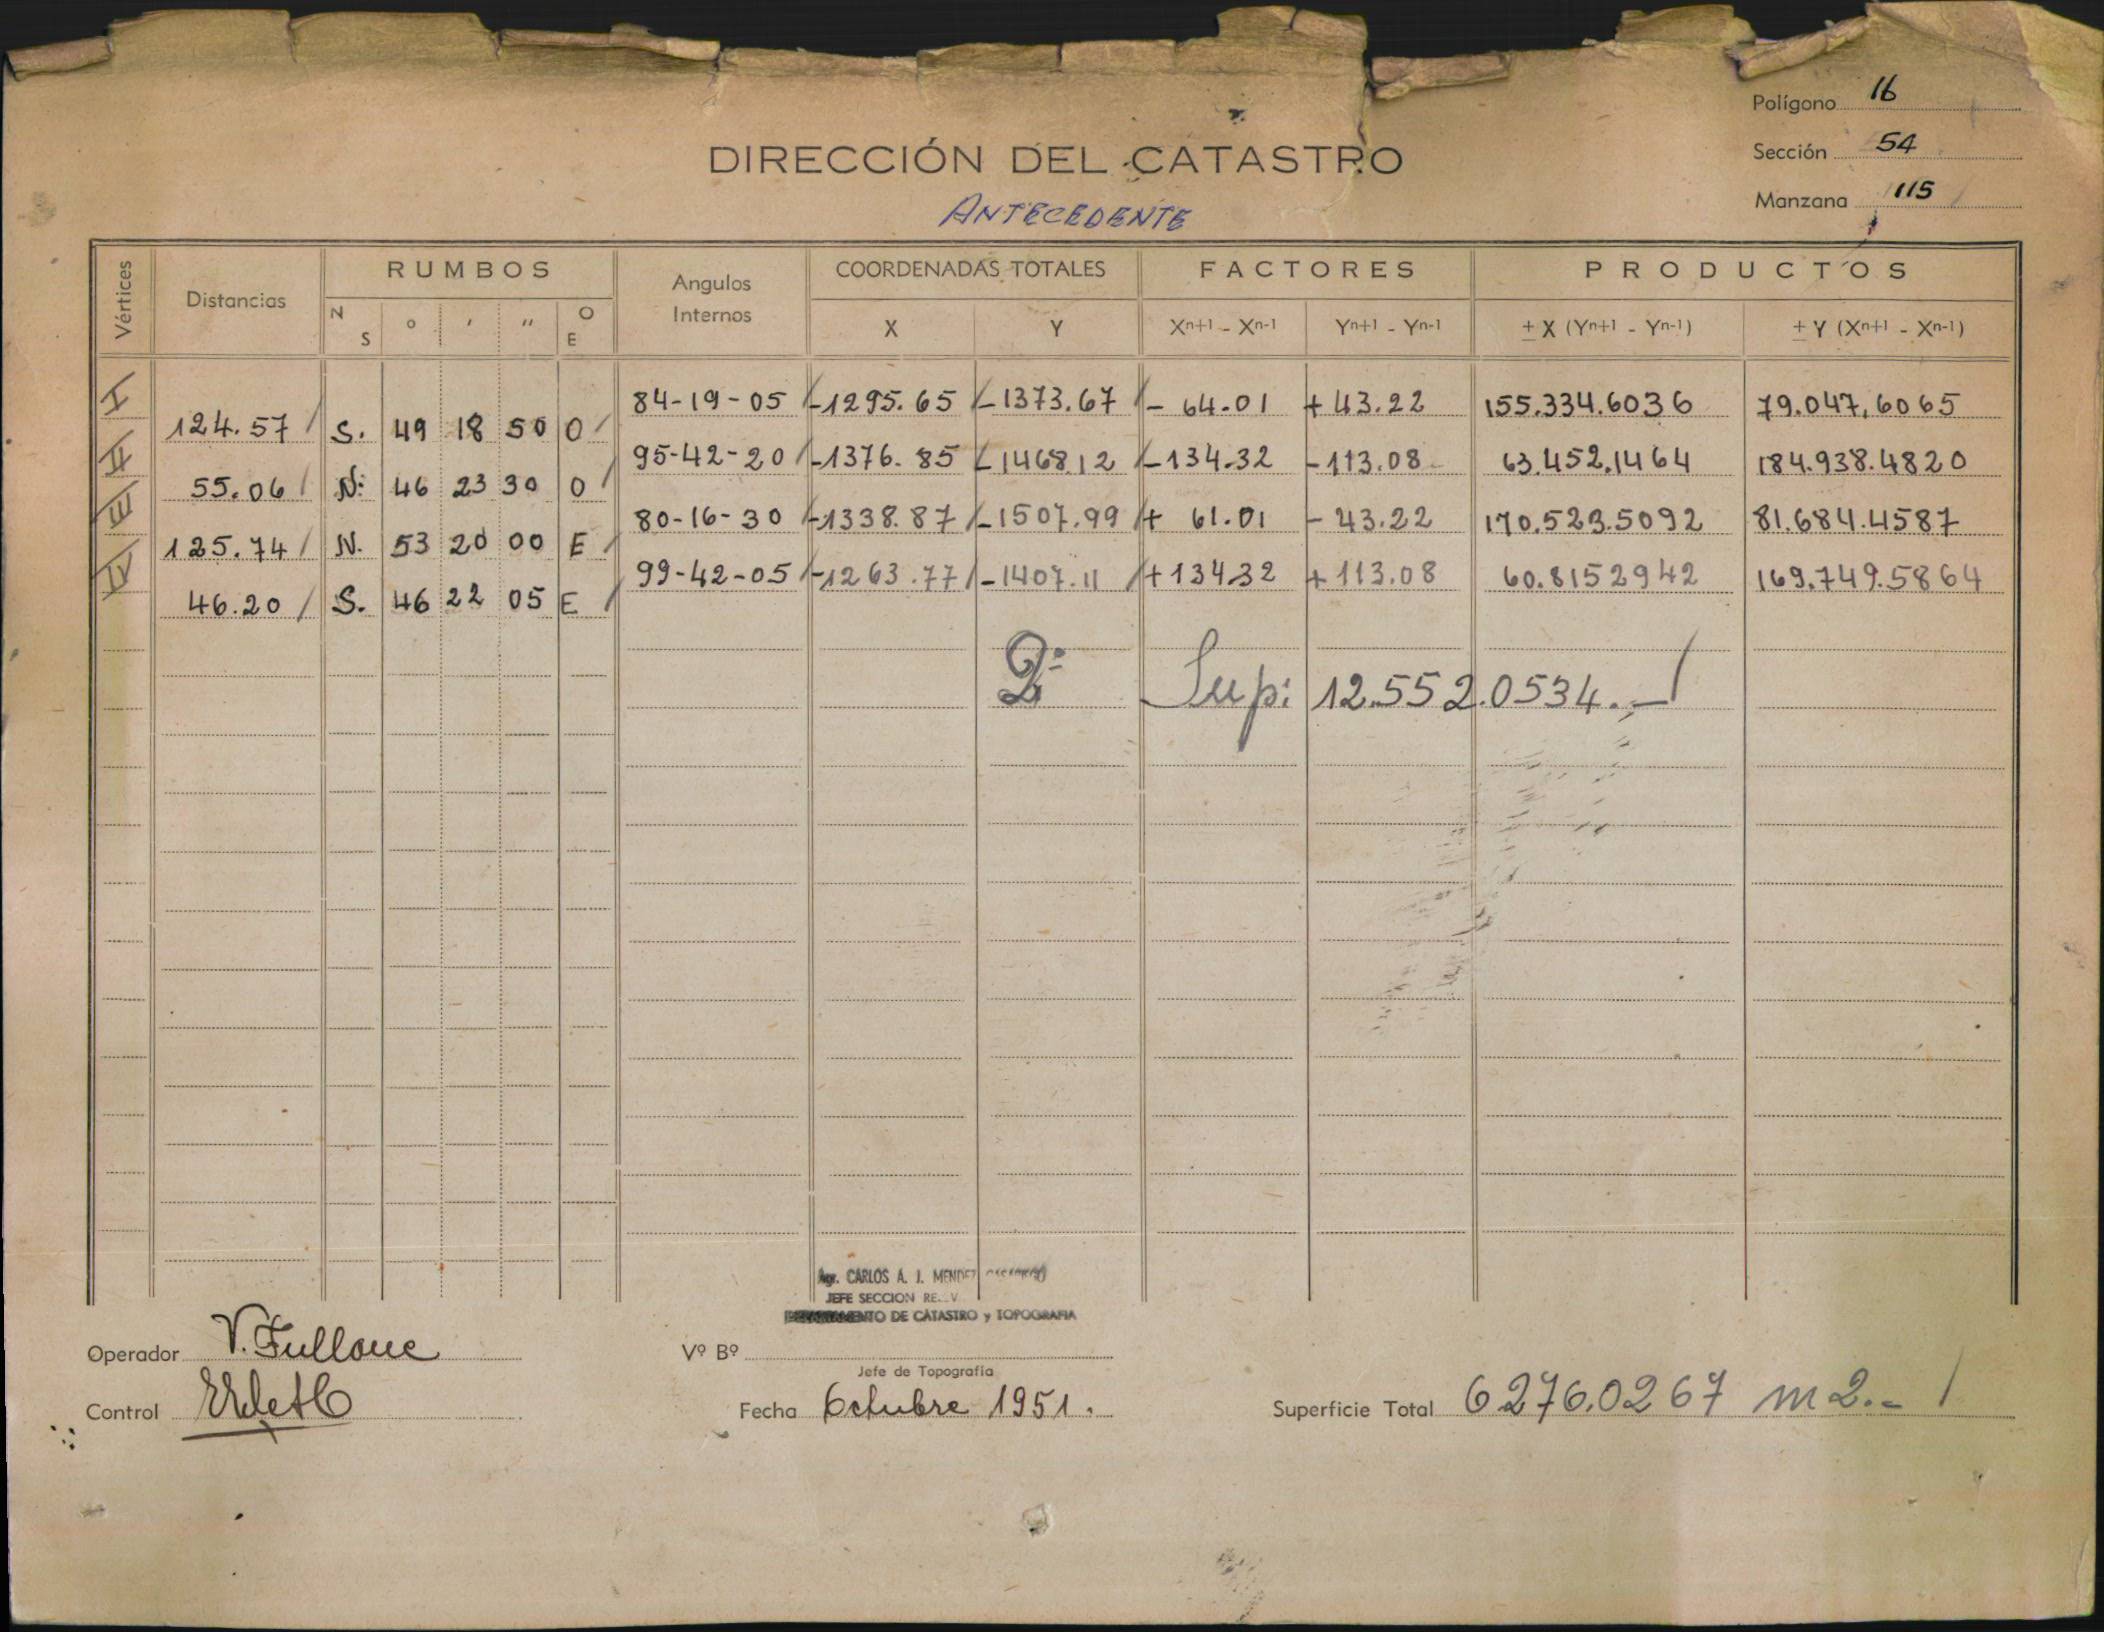 Polígono 16
Sección 54
Manzana 115
DIRECCIÓN DEL CATASTRO
ANTECEDENTE
Vértices Distancias RUMBOS Angulos Internos COORDENADAS TOTALES FACTORES PRODUCTOS
N S o ' '' O E X Y Xn+1 - Xn-1 Yn+1 - Yn-1 ± X (Yn+1 - Yn-1) ± Y (Xn+1 - Xn-1)
I 84-19-05 -1295.65 -1373.67 - 64.01 +43.22 155.334.6036 79.047,6065
124.57 S. 49 18 50 O
II 95-42-20 -1376.85 -1468.12 -134.32 -113.08 63.452.1464 184.938.4820
55.06 N. 46 23 30 O
III 80-16-30 -1338.87 -1507.99 + 61.01 - 43.22 170.523.5092 81.684.4587
125.74 N. 53 20 00 E
IV 99-42-05 -1263.77 -1407.11 +134.32 +113.08 60.8152942 169.749.5864
46.20 S. 46 22 05 E
2· Sup: 12.552.0534.-
Agr. CARLOS A. J. MENDEZ
JEFE SECCION
DE CATASTRO y TOPOGRAFIA
Operador V. Fullone Vº Bº
Jefe de Topografía
Control Fecha Octubre 1951. Superficie Total 6276.0267 m2.-